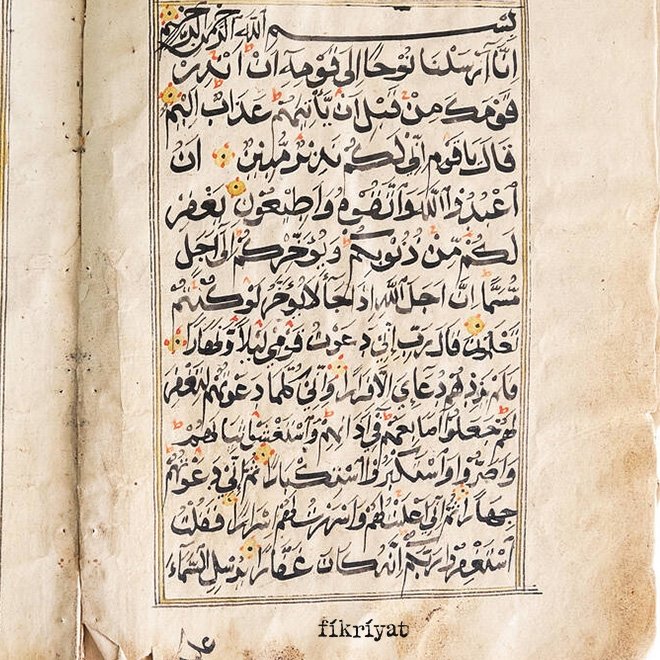 بسم الله الرحمن الرحيم
إِنَّا أَرْسَلْنَا نُوحًا إِلَى قَوْمِهِ أَنْ أَنْذِرْ
قَوْمَكَ مِنْ قَبْلِ أَنْ يَأْتِيَهُمْ عَذَابٌ أَلِيمٌ
قَالَ يَا قَوْمِ إِنِّي لَكُمْ نَذِيرٌ مُبِينٌ أَنِ
اعْبُدُوا اللَّهَ وَاتَّقُوهُ وَأَطِيعُونِ يَغْفِرْ
لَكُمْ مِنْ ذُنُوبِكُمْ وَيُؤَخِّرْكُمْ إِلَى أَجَلٍ
مُسَمًّا إِنَّ أَجَلَ اللَّهِ إِذَا جَاءَ لَا يُؤَخَّرُ لَوْ كُنْتُمْ
تَعْلَمُونَ قَالَ رَبِّ إِنِّي دَعَوْتُ قَوْمِي لَيْلًا وَنَهَارًا
فَلَمْ يَزِدْهُمْ دُعَائِي إِلَّا فِرَارًا وَإِنِّي كُلَّمَا دَعَوْتُهُمْ لِتَغْفِرَ
لَهُمْ جَعَلُوا أَصَابِعَهُمْ فِي آذَانِهِمْ وَاسْتَغْشَوْا ثِيَابَهُمْ
وَأَصَرُّوا وَاسْتَكْبَرُوا اسْتِكْبَارًا ثُمَّ إِنِّي دَعَوْتُهُمْ
جِهَارًا ثُمَّ إِنِّي أَعْلَنْتُ لَهُمْ وَأَسْرَرْتُ لَهُمْ إِسْرَارًا فَقُلْتُ
اسْتَغْفِرُوا رَبَّكُمْ إِنَّهُ كَانَ غَفَّارًا يُرْسِلِ السَّمَاءَ
fikriyat